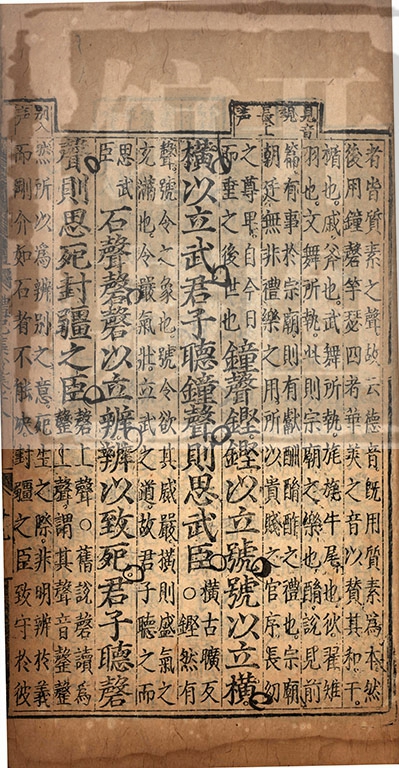 見音
現
長上
声
別入
声
者皆質素之聲故云德音旣用質素為本然
後用鐘磬竽瑟四者華美之音以賛其和干
楯也戚斧也武舞所執旄旄牛尾也狄翟雉
羽也文舞所執此則宗廟之樂也酳說見前
篇有事於宗廟則有獻酬酳酢之禮也宗廟
朝廷無非禮樂之用所以貴賤之官序長幼
之尊卑自今日
而垂之後世也
鐘聲鏗鏗以立號號以立橫
橫以立武君子聽鐘聲則思武臣
橫古曠反
○鏗然有
聲號令之象也號令欲其威嚴橫則盛氣之
充滿也令嚴氣壯立武之道故君子聽之而
思武
臣
石聲磬磬以立辨辨以致死君子聽磬
聲則思死封疆之臣
磬上聲○舊說磬讀為
罄上聲謂其聲音罄罄
然所以為辨別之意死生之際非明辨於義
而剛介如石者不能決封疆之臣致守於彼